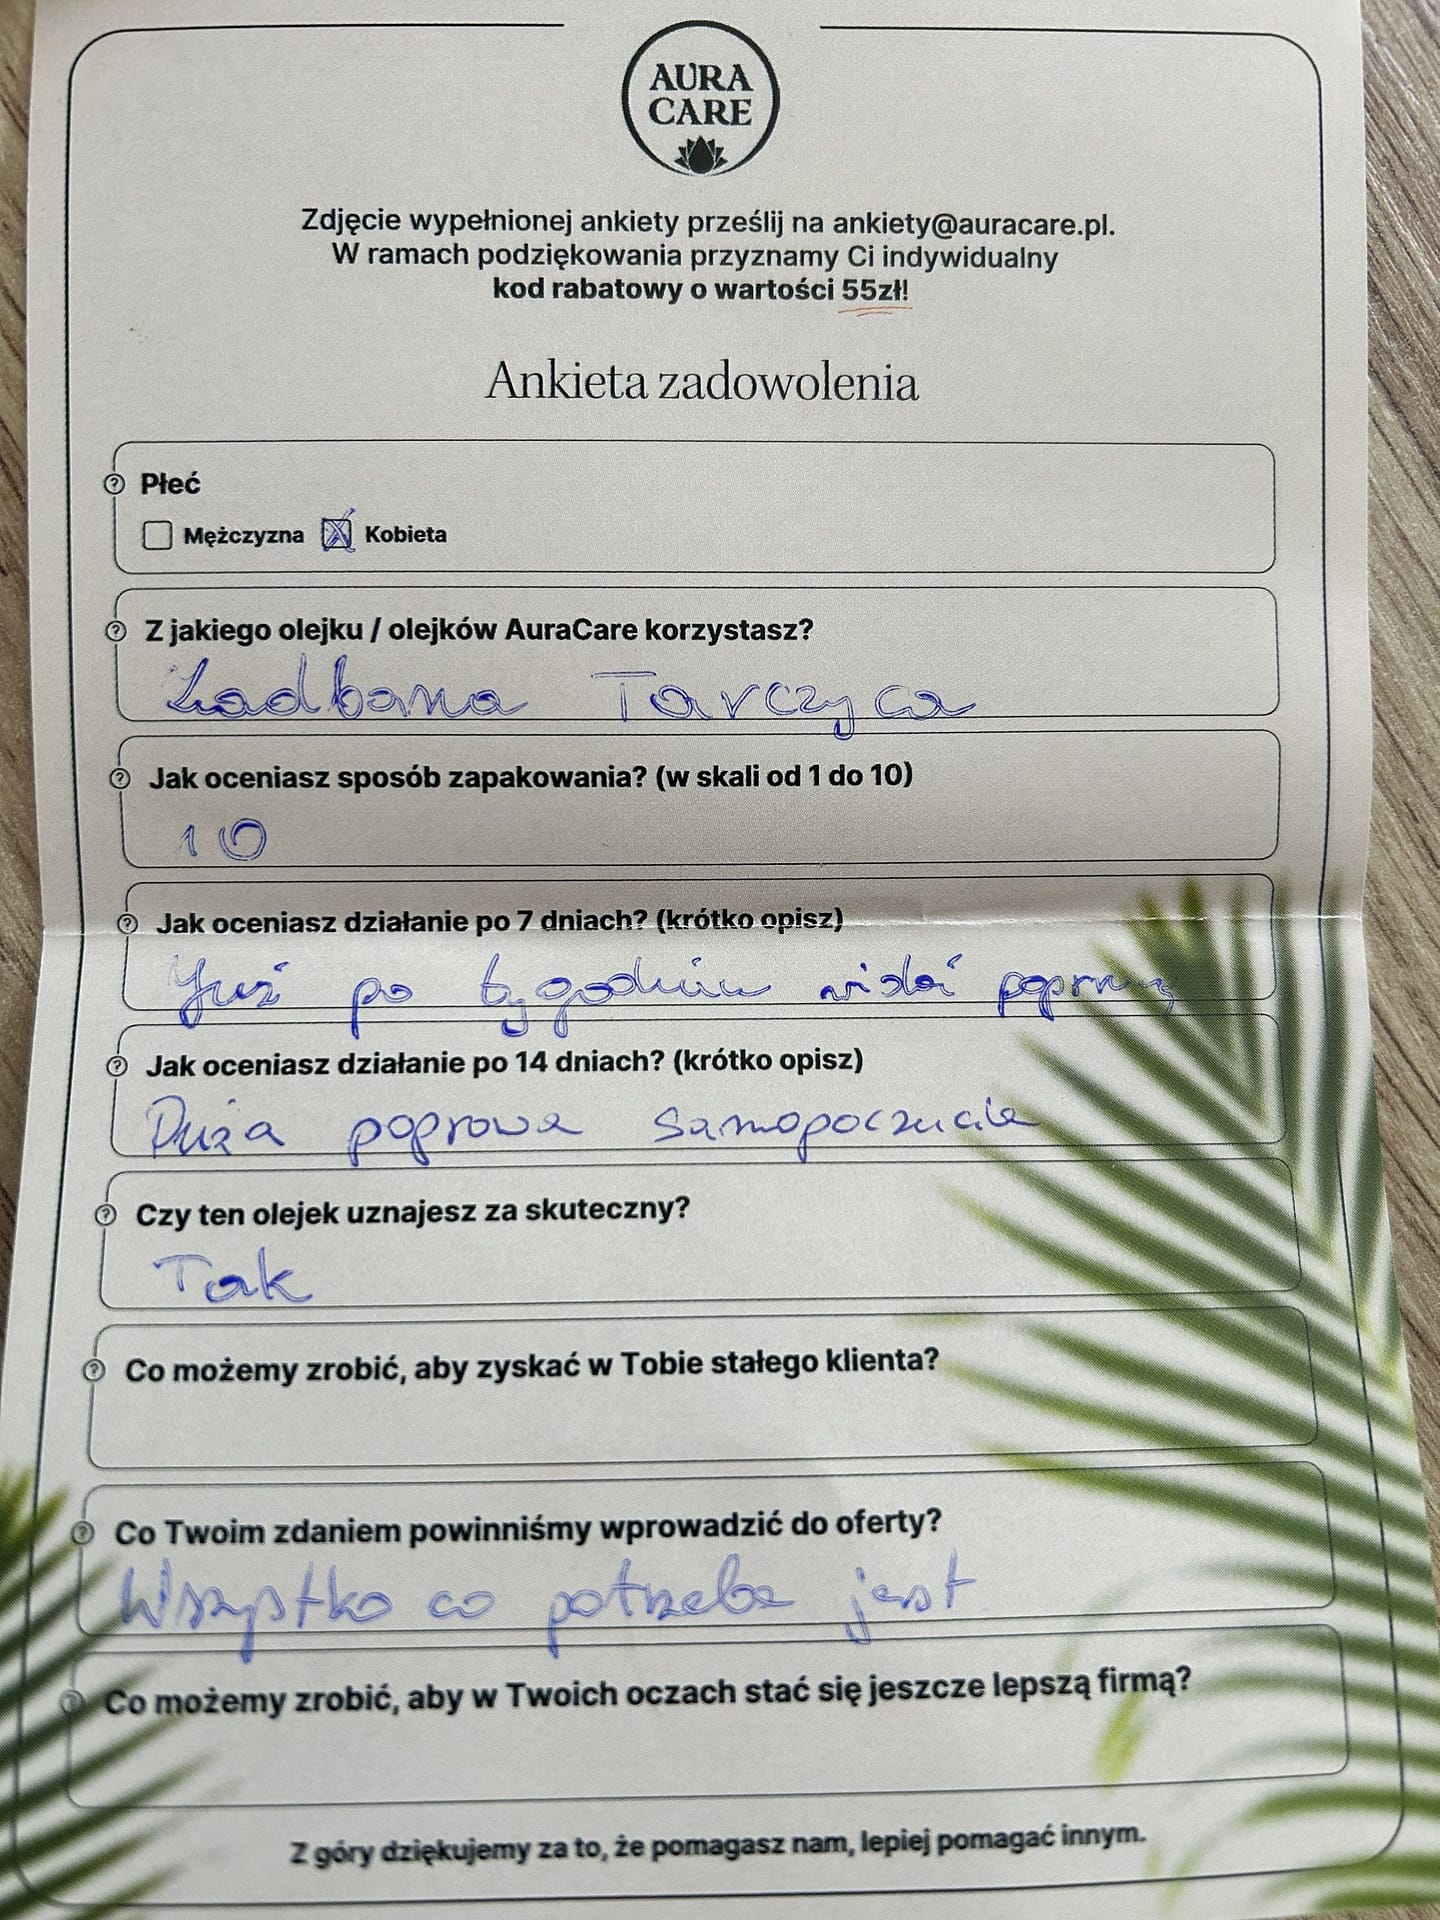 AURA
CARE
Zdjęcie wypełnionej ankiety prześlij na ankiety@auracare.pl.
W ramach podziękowania przyznamy Ci indywidualny
kod rabatowy o wartości 55zł!
Ankieta zadowolenia
Płeć
Mężczyzna Kobieta
Z jakiego olejku / olejków AuraCare korzystasz?
Zadbana Tarczyca
Jak oceniasz sposób zapakowania? (w skali od 1 do 10)
10
Jak oceniasz działanie po 7 dniach? (krótko opisz)
Już po tygodniu widać poprawę
Jak oceniasz działanie po 14 dniach? (krótko opisz)
Duża poprawa samopoczucia
Czy ten olejek uznajesz za skuteczny?
Tak
Co możemy zrobić, aby zyskać w Tobie stałego klienta?
Co Twoim zdaniem powinniśmy wprowadzić do oferty?
Wszystko co potrzeba jest
Co możemy zrobić, aby w Twoich oczach stać się jeszcze lepszą firmą?
Z góry dziękujemy za to, że pomagasz nam, lepiej pomagać innym.